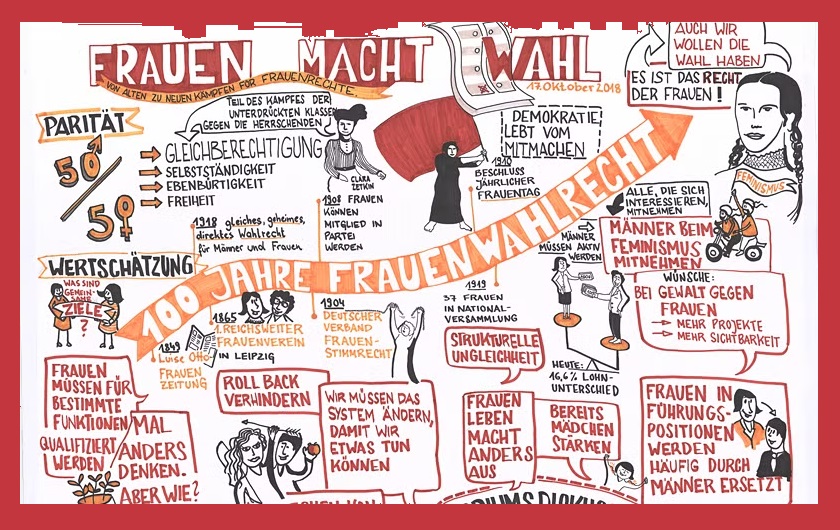 FRAUEN MACHT WAHL
VON ALTEN ZU NEUEN KÄMPFEN FÜR FRAUENRECHTE
17.Oktober 2018
AUCH WIR
WOLLEN DIE
WAHL HABEN
ES IST DAS RECHT
DER FRAUEN!
PARITÄT
50
50
TEIL DES KAMPFES DER
UNTERDRÜCKTEN KLASSE
GEGEN DIE HERRSCHENDEN
GLEICHBERECHTIGUNG
SELBSTSTÄNDIGKEIT
EBENBÜRTIGKEIT
FREIHEIT
CLARA
ZETKIN
DEMOKRATIE
LEBT VOM
MITMACHEN
1910
BESCHLUSS
JÄHRLICHER
FRAUENTAG
FEMINISMUS
1908 FRAUEN
KÖNNEN
MITGLIED IN
PARTEI
WERDEN
1918 gleiches, geheimes,
direktes Wahlrecht
für Männer und Frauen
ALLE, DIE SICH
INTERESSIEREN,
MITNEHMEN
MÄNNER
MÜSSEN AKTIV
WERDEN
MÄNNER BEIM
FEMINISMUS
MITNEHMEN
WERTSCHÄTZUNG
100 JAHRE FRAUENWAHLRECHT
WAS SIND
GEMEIN-
SAME
ZIELE
?
WÜNSCHE:
BEI GEWALT GEGEN
FRAUEN
MEHR PROJEKTE
MEHR SICHTBARKEIT
1919
37 FRAUEN
IN NATIONAL-
VERSAMMLUNG
1904
DEUTSCHER
VERBAND
FRAUEN-
STIMMRECHT
1865
1.REICHSWEITER
FRAUENVEREIN
IN LEIPZIG
1849
Luise Otto
FRAUEN
ZEITUNG
STRUKTURELLE
UNGLEICHHEIT
HEUTE:
16,6% LOHN-
UNTERSCHIED
FRAUEN
MÜSSEN FÜR
BESTIMMTE
FUNKTIONEN
QUALIFIZIERT
WERDEN
MAL
ANDERS
DENKEN.
ABER WIE?
ROLL BACK
VERHINDERN
WIR MÜSSEN DAS
SYSTEM ÄNDERN,
DAMIT WIR
ETWAS TUN
KÖNNEN
FRAUEN
LEBEN
MACHT
ANDERS
AUS
BEREITS
MÄDCHEN
STÄRKEN
FRAUEN IN
FÜHRUNGS-
POSITIONEN
WERDEN
HÄUFIG DURCH
MÄNNER ERSETZT